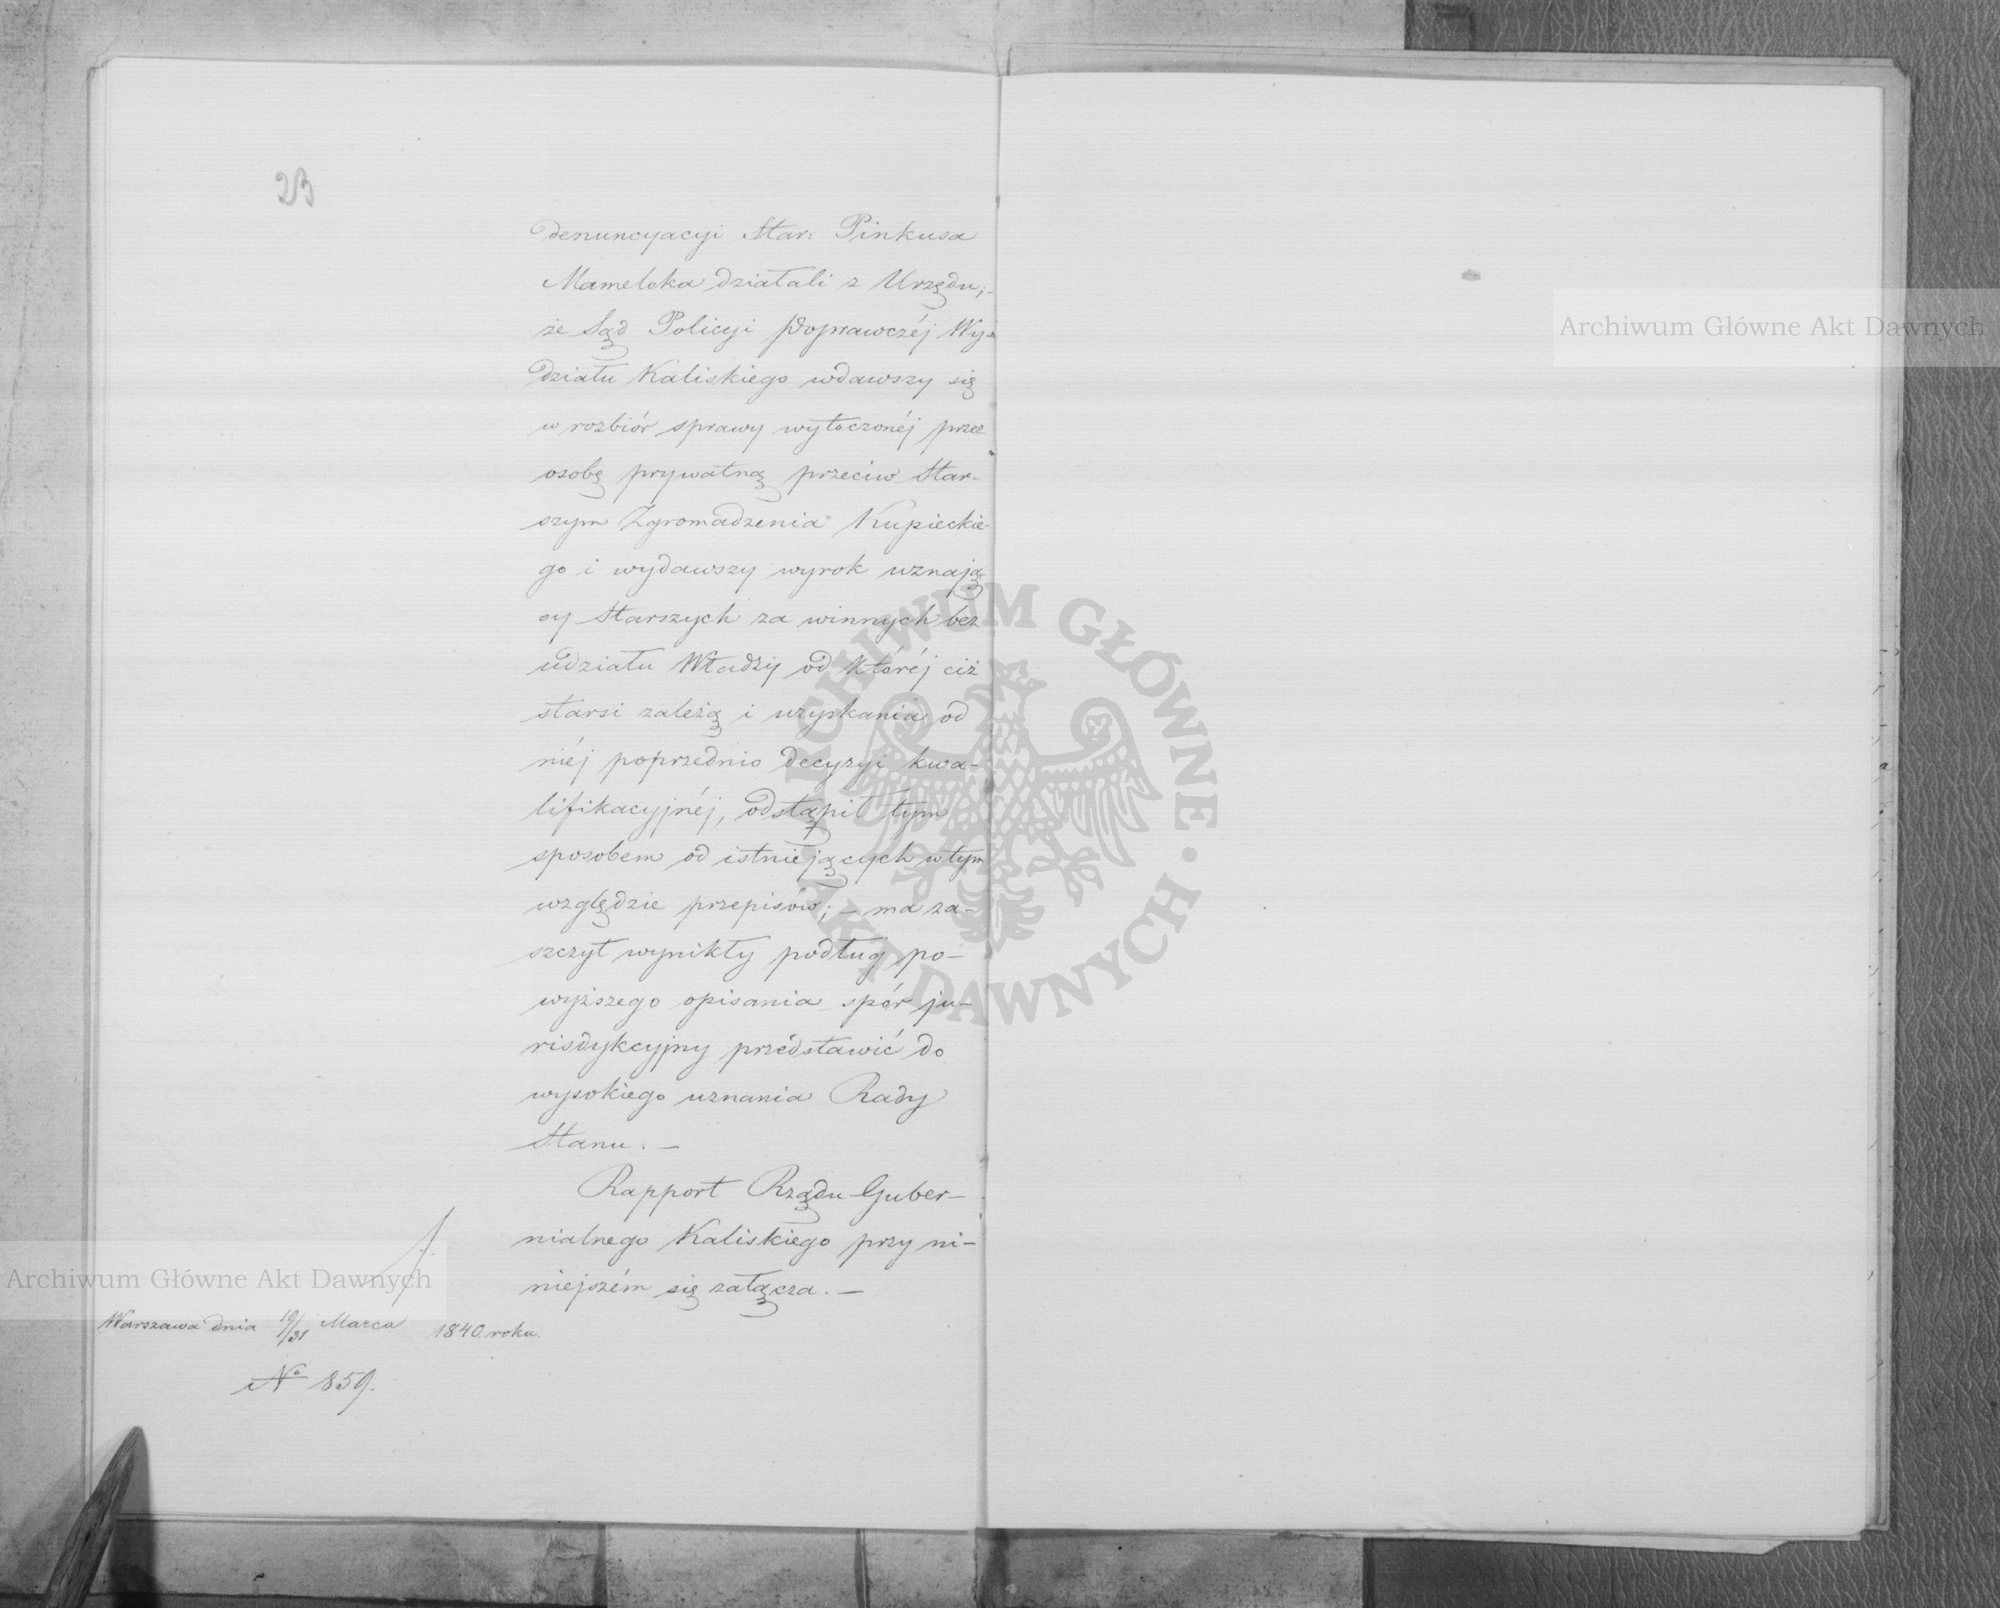 23
denuncyacyi Star: Pinkusa
Mameloka działali z Urzędu;-
że Sąd Policyi Poprawczéj Wy-
działu Kaliskiego wdawszy się
w rozbiór sprawy wytoczonéj przez
osobę prywatną przeciw Star-
szym Zgromadzenia Kupieckie-
go i wydawszy wyrok uznają-
cy Starszych za winnych bez
udziału Władzy od któréj ciż
starsi zależą i uzyskania od
niéj poprzednio decyzyi kwa-
lifikacyjnéj, odstąpił tym
sposobem od istniejących w tym
względzie przepisów; - ma za-
szczyt wynikły podług po-
wyższego opisania spór ju-
risdykcyjny przedstawić do
wysokiego uznania Rady
Stanu. -
Rapport Rządu Guber-
nialnego Kaliskiego przy ni-
niejszém się załącza. -
Warszawa dnia 19/31 Marca 1840 roku.
No 859.
Archiwum Główne Akt Dawnych
Archiwum Główne Akt Dawnych
ARCHIWUM GŁÓWNE · AKT DAWNYCH ·